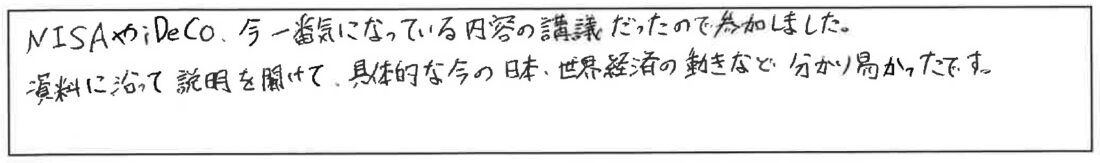 NISAやiDeCo、今一番気になっている内容の講議だったので参加しました。
資料に沿って説明を聞けて、具体的な今の日本、世界経済の動きなど分かり易かったです。